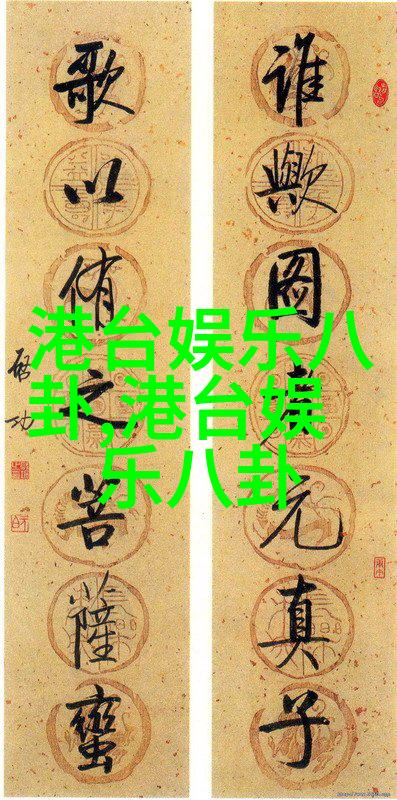 谁歟图元真子
歌以侑之菩薩蠻
启功
港台娱乐八
卦,港台娱
乐八卦